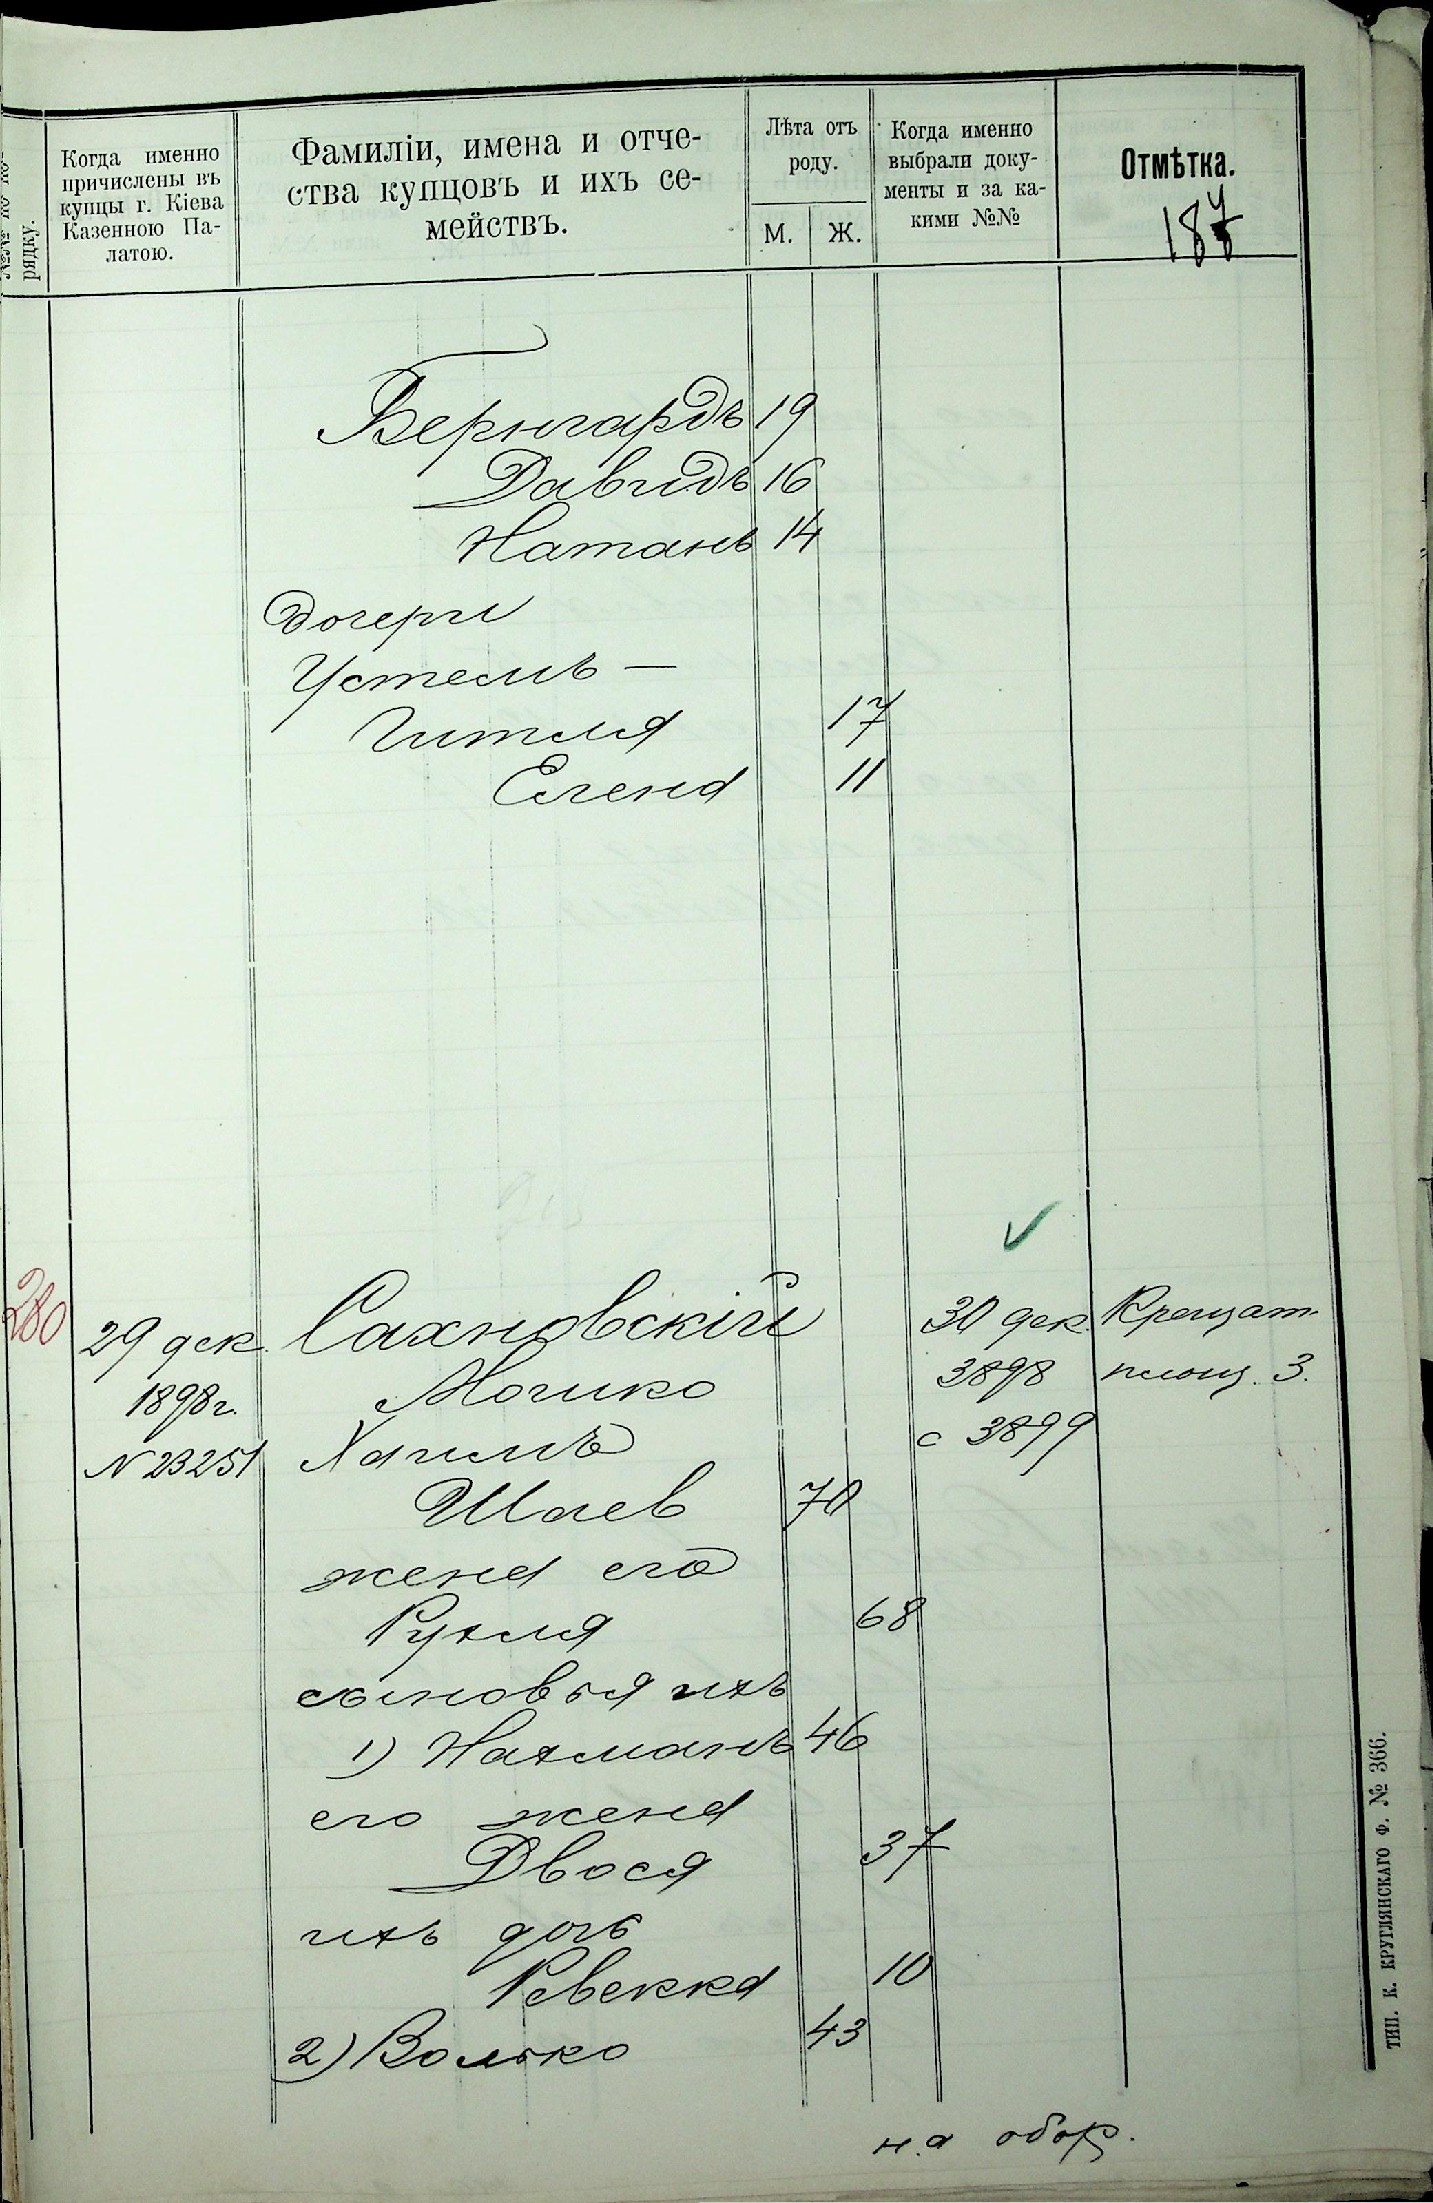 №№ по по-
рядку.
Когда именно
причислены въ
купцы г. Кіева
Казенною Па-
латою.
Фамиліи, имена и отче-
ства купцовъ и ихъ се-
мействъ.
Лѣта отъ
роду.
М.
Ж.
Когда именно
выбрали доку-
менты и за ка-
кими №№
Отмѣтка.
187
Бернгардъ 19
Давидъ 16
Натанъ 14
Дочери
Устель —
Гитля 17
Елена 11
280
29 дек. Сахновскій 30 дек. Крещат.
1898 г. Мошко 3898 площ. 3.
N 23251 Хаимъ с 3899
Шаев 70
жена его
Рухля 68
сыновья ихъ
1) Нахманъ 46
его жена
Двося 37
ихъ дочь
Ревекка 10
2) Волько 43
на обор.
ТИП. К. КРУГЛЯНСКАГО Ф. № 366.